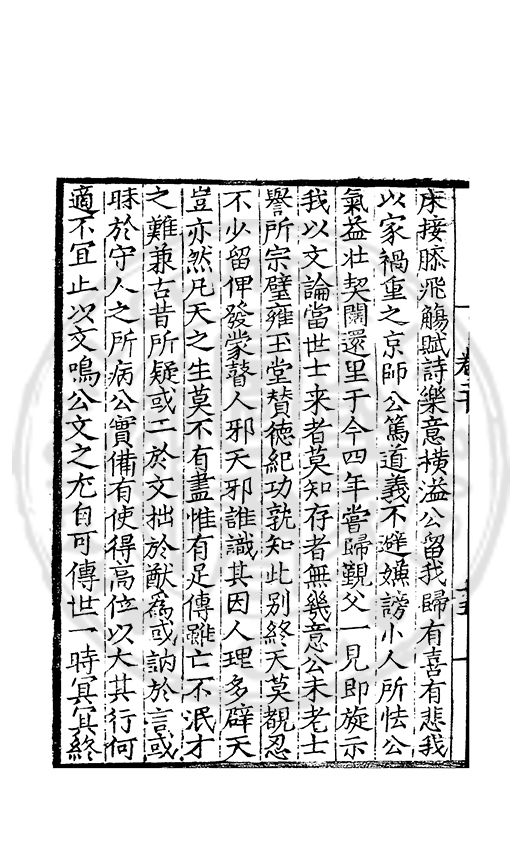 牀接膝飛觴賦詩樂意橫溢公留我歸有喜有悲我
以家禍重之京師公篤道義不避嫌謗小人所怯公
氣益壯契闊還里于今四年嘗歸覲父一見即旋示
我以文論當世士来者莫知存者無幾意公未老士
譽所宗璧雍玉堂賛徳紀功孰知此别終天莫覩忍
不少留俾發蒙瞽人邪天邪誰識其因人理多辟天
豈亦然凡天之生莫不有盡惟有足傳雖亡不泯才
之難兼古昔所疑或工於文拙於猷爲或訥於言或
昧於守人之所病公實備有使得高位以大其行何
適不宜止以文鳴公文之尤自可傳世一時冥冥終